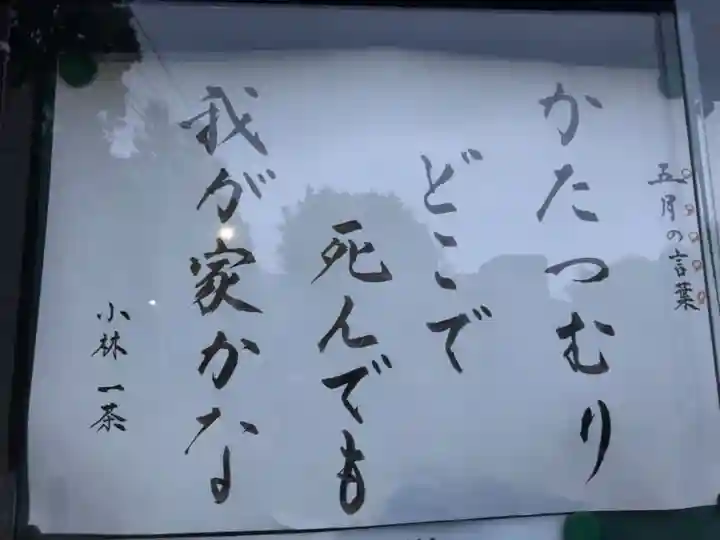 五月の言葉
かたつむり
どこで
死んでも
我が家かな
小林一茶